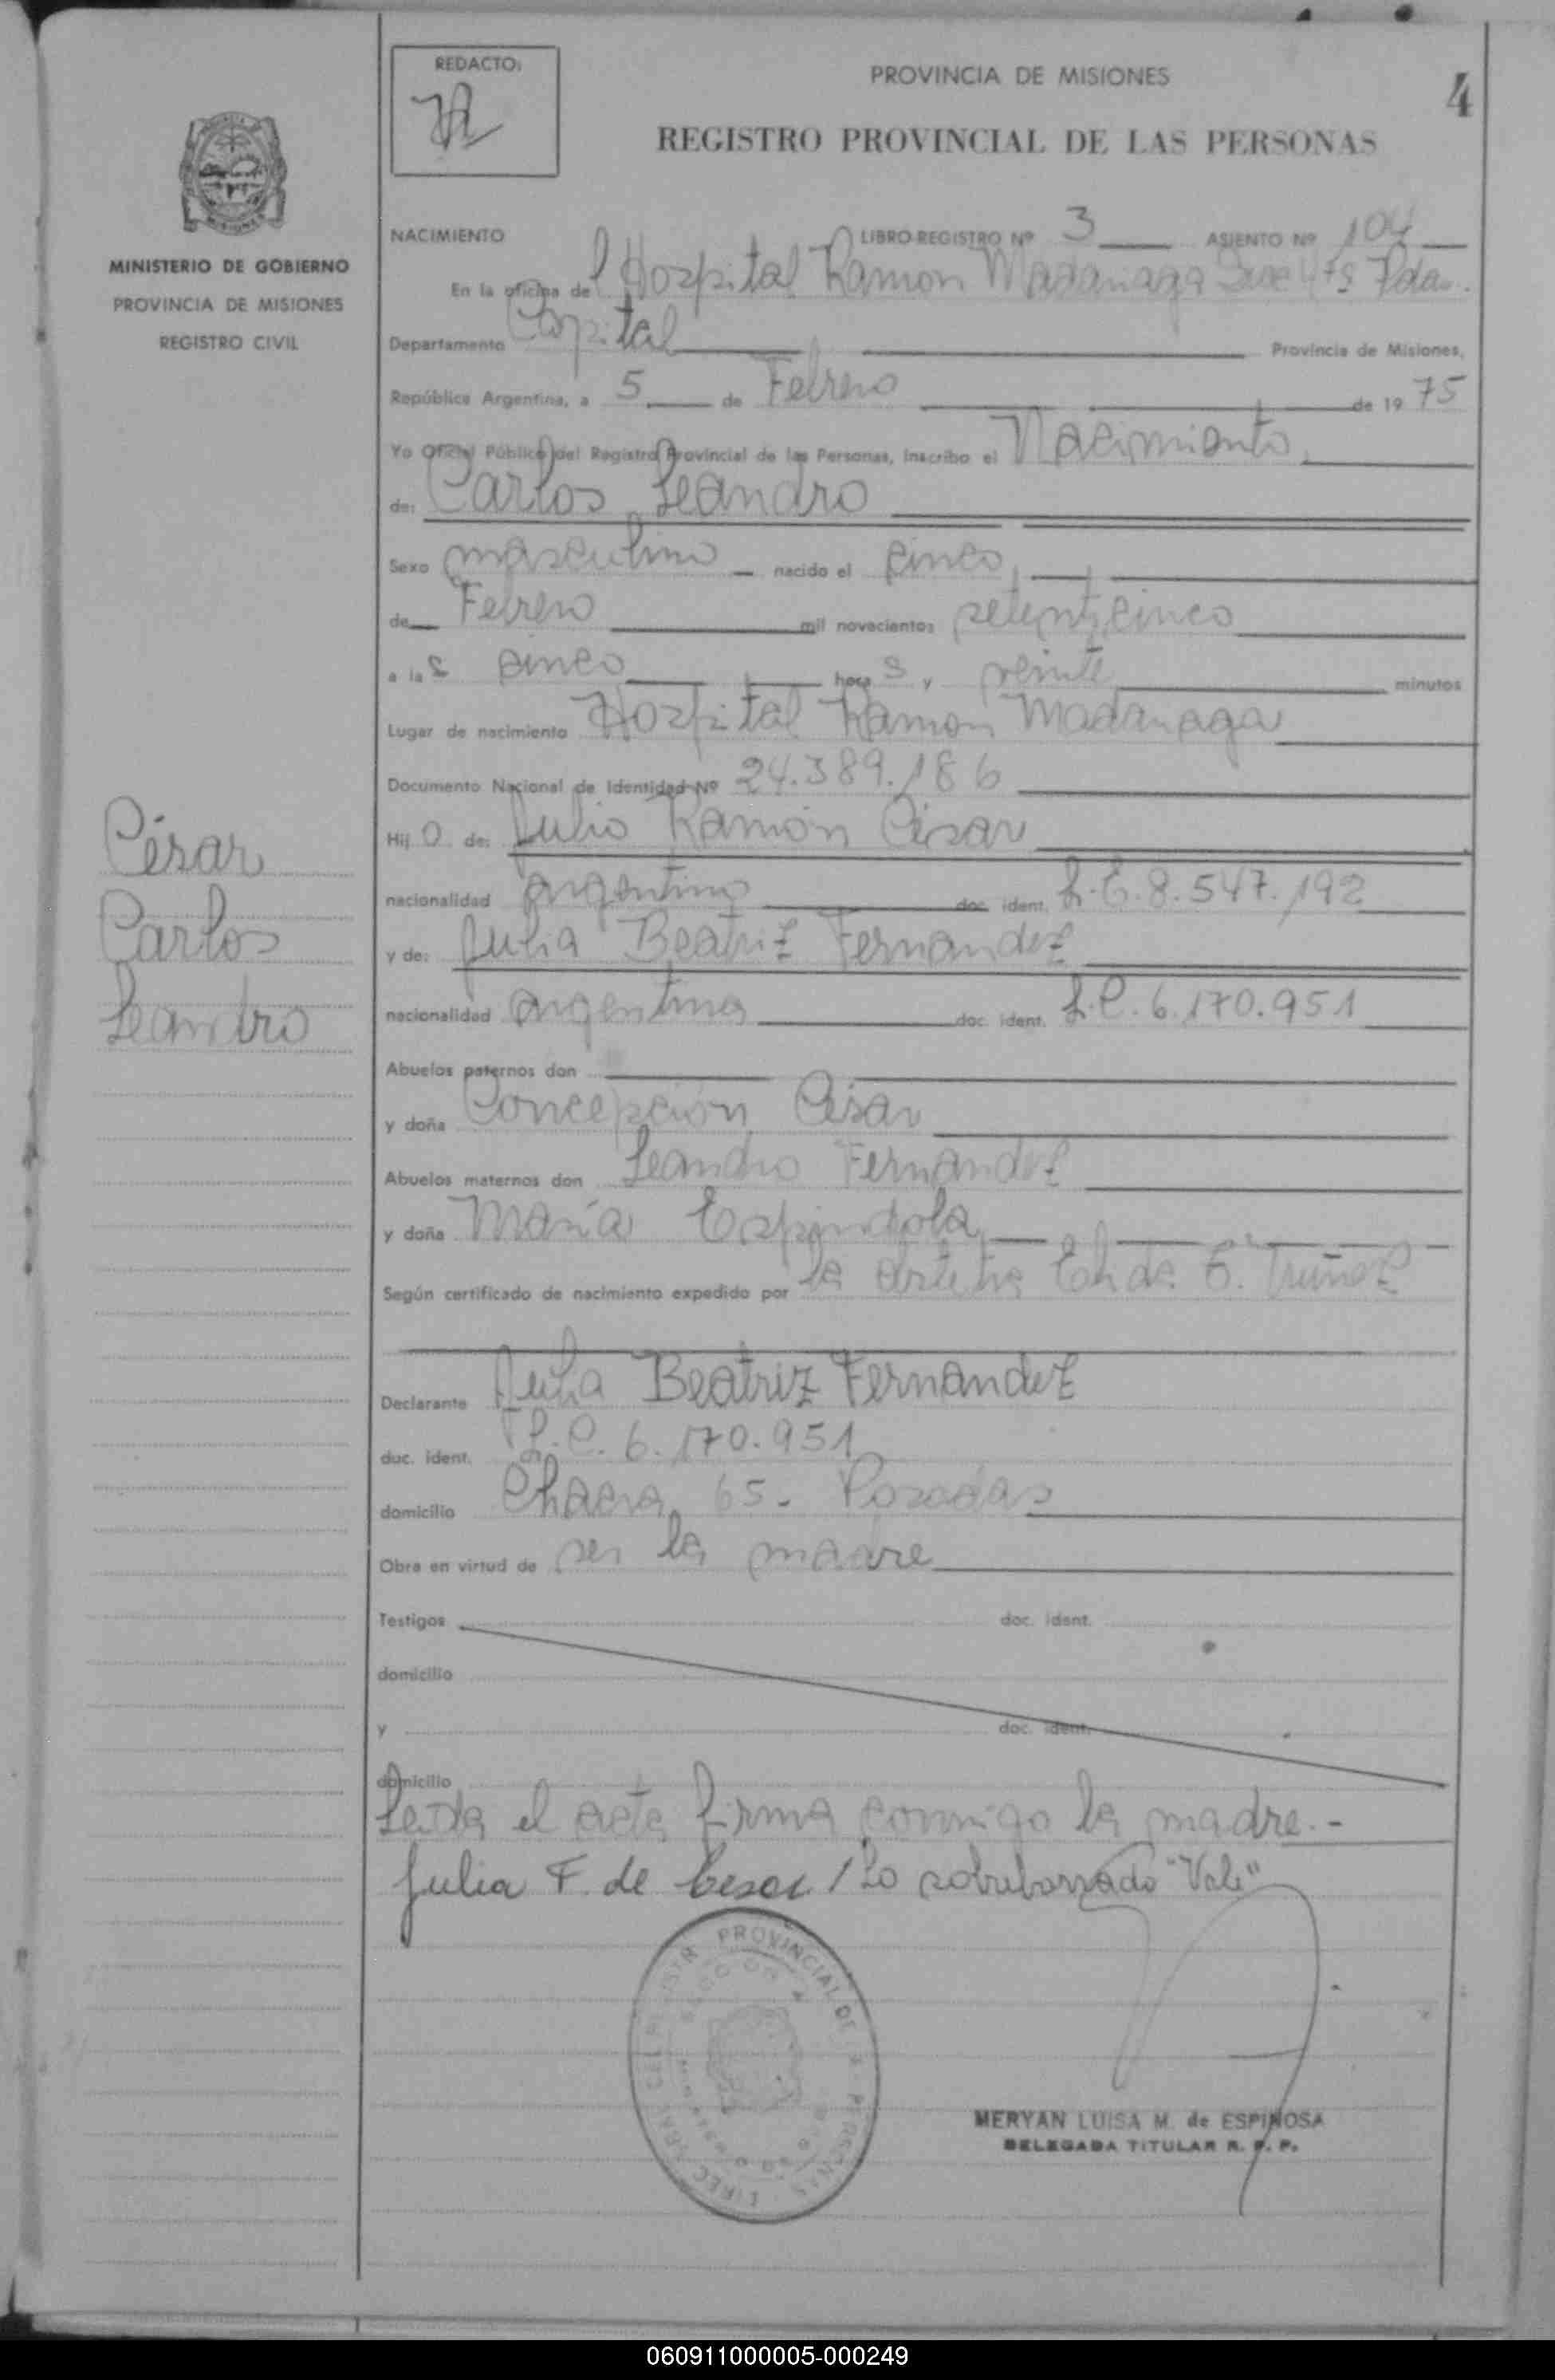 REDACTO:
PROVINCIA DE MISIONES
4
REGISTRO PROVINCIAL DE LAS PERSONAS
MINISTERIO DE GOBIERNO
PROVINCIA DE MISIONES
REGISTRO CIVIL
NACIMIENTO LIBRO-REGISTRO Nº 3 ASIENTO Nº 104
En la oficina del Hospital Ramon Madariaga
Departamento Capital Provincia de Misiones,
República Argentina, a 5 de Febrero de 1975
Yo Oficial Público del Registro Provincial de las Personas, inscribo el Nacimiento
de: Carlos Leandro
Sexo masculino nacido el cinco
de Febrero mil novecientos setenticinco
a las cinco horas y veinte minutos
Lugar de nacimiento Hospital Ramon Madariaga
Documento Nacional de Identidad Nº 24.389.186
Hijo de: Julio Ramón César
nacionalidad argentino doc. ident. L.E. 8.547.192
y de: Julia Beatriz Fernandez
nacionalidad argentina doc. ident. L.C. 6.170.951
César
Carlos
Leandro
Abuelos paternos don
y doña Concepción César
Abuelos maternos don Leandro Fernandez
y doña María Espindola
Según certificado de nacimiento expedido por la
Declarante Julia Beatriz Fernandez
doc. ident. L.C. 6.170.951
domicilio Chacra 65. Posadas
Obra en virtud de ser la madre
Testigos doc. ident.
domicilio
y doc. ident.
domicilio
Leida el acta firma conmigo la madre.-
Julia F. de Cesar / Lo sobreborrado "Vale"
PROVINCIAL DE
MERYAN LUISA M. de ESPINOSA
DELEGADA TITULAR R. P. P.
060911000005-000249